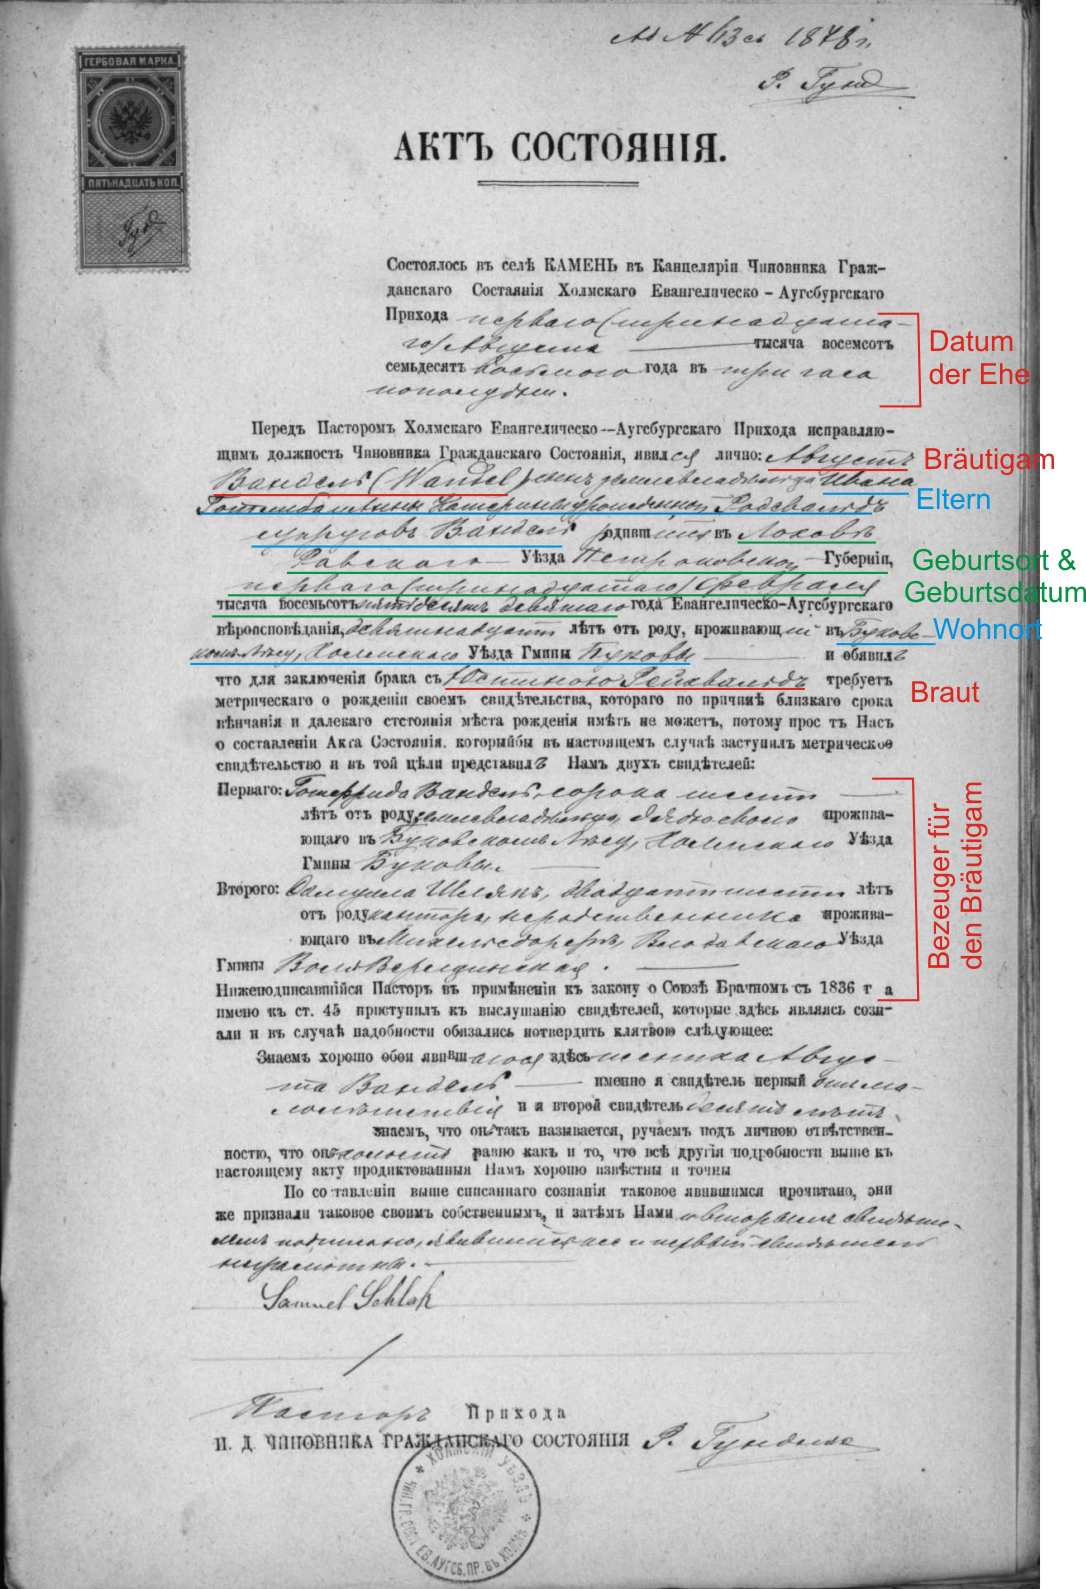 Ad № 63 съ 1878 г.
Р. Гунд
ГЕРБОВАЯ МАРКА.
ПЯТЬНАДЦАТЬ КОП.
АКТЪ СОСТОЯНІЯ.
Состоялось въ селѣ КАМЕНЬ въ Канцеляріи Чиновника Граж-
данскаго Состаянія Холмскаго Евангелическо – Аугсбургскаго
Прихода перваго (тринадцата-
го) Августа тысяча восемсотъ
семьдесятъ восьмого года въ три часа
пополудни.
Datum
der Ehe
Передъ Пасторомъ Холмскаго Евангелическо—Аугсбургскаго Прихода исправляю-
щимъ должность Чиновника Гражданскаго Состоянія, явился лично: Августъ
Bräutigam
Вандель (Wandel) сынъ землевладельца Ивана
Eltern
Готлиба и Анны Катерины урожденной Родевальдъ
супруговъ Вандель родившійся въ Лоховѣ
Равскаго Уѣзда Петроковской Губерніи,
Geburtsort &
Geburtsdatum
перваго (тринадцатаго) Февраля
тысяча восемьсотъ пятьдесятъ девятаго года Евангелическо-Аугсбургскаго
вѣроисповѣданія, девятнадцати лѣтъ отъ роду, проживающій въ Буковс-
Wohnort
комъ Лѣсу, Холмскаго Уѣзда Гмины Буковы и обявилъ
что для заключенія брака съ Юстиною Рейхвальдъ требуетъ
Braut
метрическаго о рожденіи своемъ свидѣтельства, котораго по причинѣ близкаго срока
вѣнчанія и далекаго стстоянія мѣста рожденія имѣть не можетъ, потому прос тъ Насъ
о составленіи Акта Состоянія. которыйбы въ настоящемъ случаѣ заступилъ метрическое
свидѣтельство и въ той цѣли представилъ Намъ двухъ свидѣтелей:
Перваго: Готфрида Вандель, сорока шести
лѣтъ отъ роду, землевладельца, дядю своего прожива-
ющаго въ Буковскомъ Лѣсу, Холмскаго Уѣзда
Гмины Буковы.
Второго: Самуила Шлякъ, двадцати шести лѣтъ
отъ роду кантора, неродственника прожива-
ющаго въ Михельсдорфъ, Влодавскаго Уѣзда
Гмины Воля Верещинская.
Bezeuger für
den Bräutigam
Нижеподписавшійся Пасторъ въ примѣненіи къ закону о Союзѣ Брачномъ съ 1836 г а
имено къ ст. 45 приступилъ къ выслушанію свидѣтелей, которые здѣсь являясь созн-
али и въ случаѣ надобности обязались потвердить клятвою слѣдующее:
Знаемъ хорошо обои явившагося здѣсь жениха Авгус-
та Вандель именно я свидѣтель первый
и я второй свидѣтель десять лѣтъ
знаемъ, что онъ такъ называется, ручаемъ подъ личною отвѣтствен-
ностю, что онъ холостъ равно какъ и то, что всѣ другія подробности выше къ
настоящему акту продиктованныя Намъ хорошо извѣстны и точны
По со тавленіи выше списаннаго сознанія таковое явившимся прочитано, они
же признали таковое своимъ собственнымъ, и затѣмъ Нами и вторымъ свидѣте-
лемъ подписано, явившійся же и первый свидѣтель
неграмотны.
Samuel Schlak
Пасторъ Прихода
И. Д. ЧИНОВНИКА ГРАЖДАНСКАГО СОСТОЯНІЯ Р. Гундлахъ
ХОЛМСКІЙ УѢЗДЪ
ЧИН. ГР. СОСТ. ЕВ. АУГСБ. ПР. ВЪ ХОЛМѢ